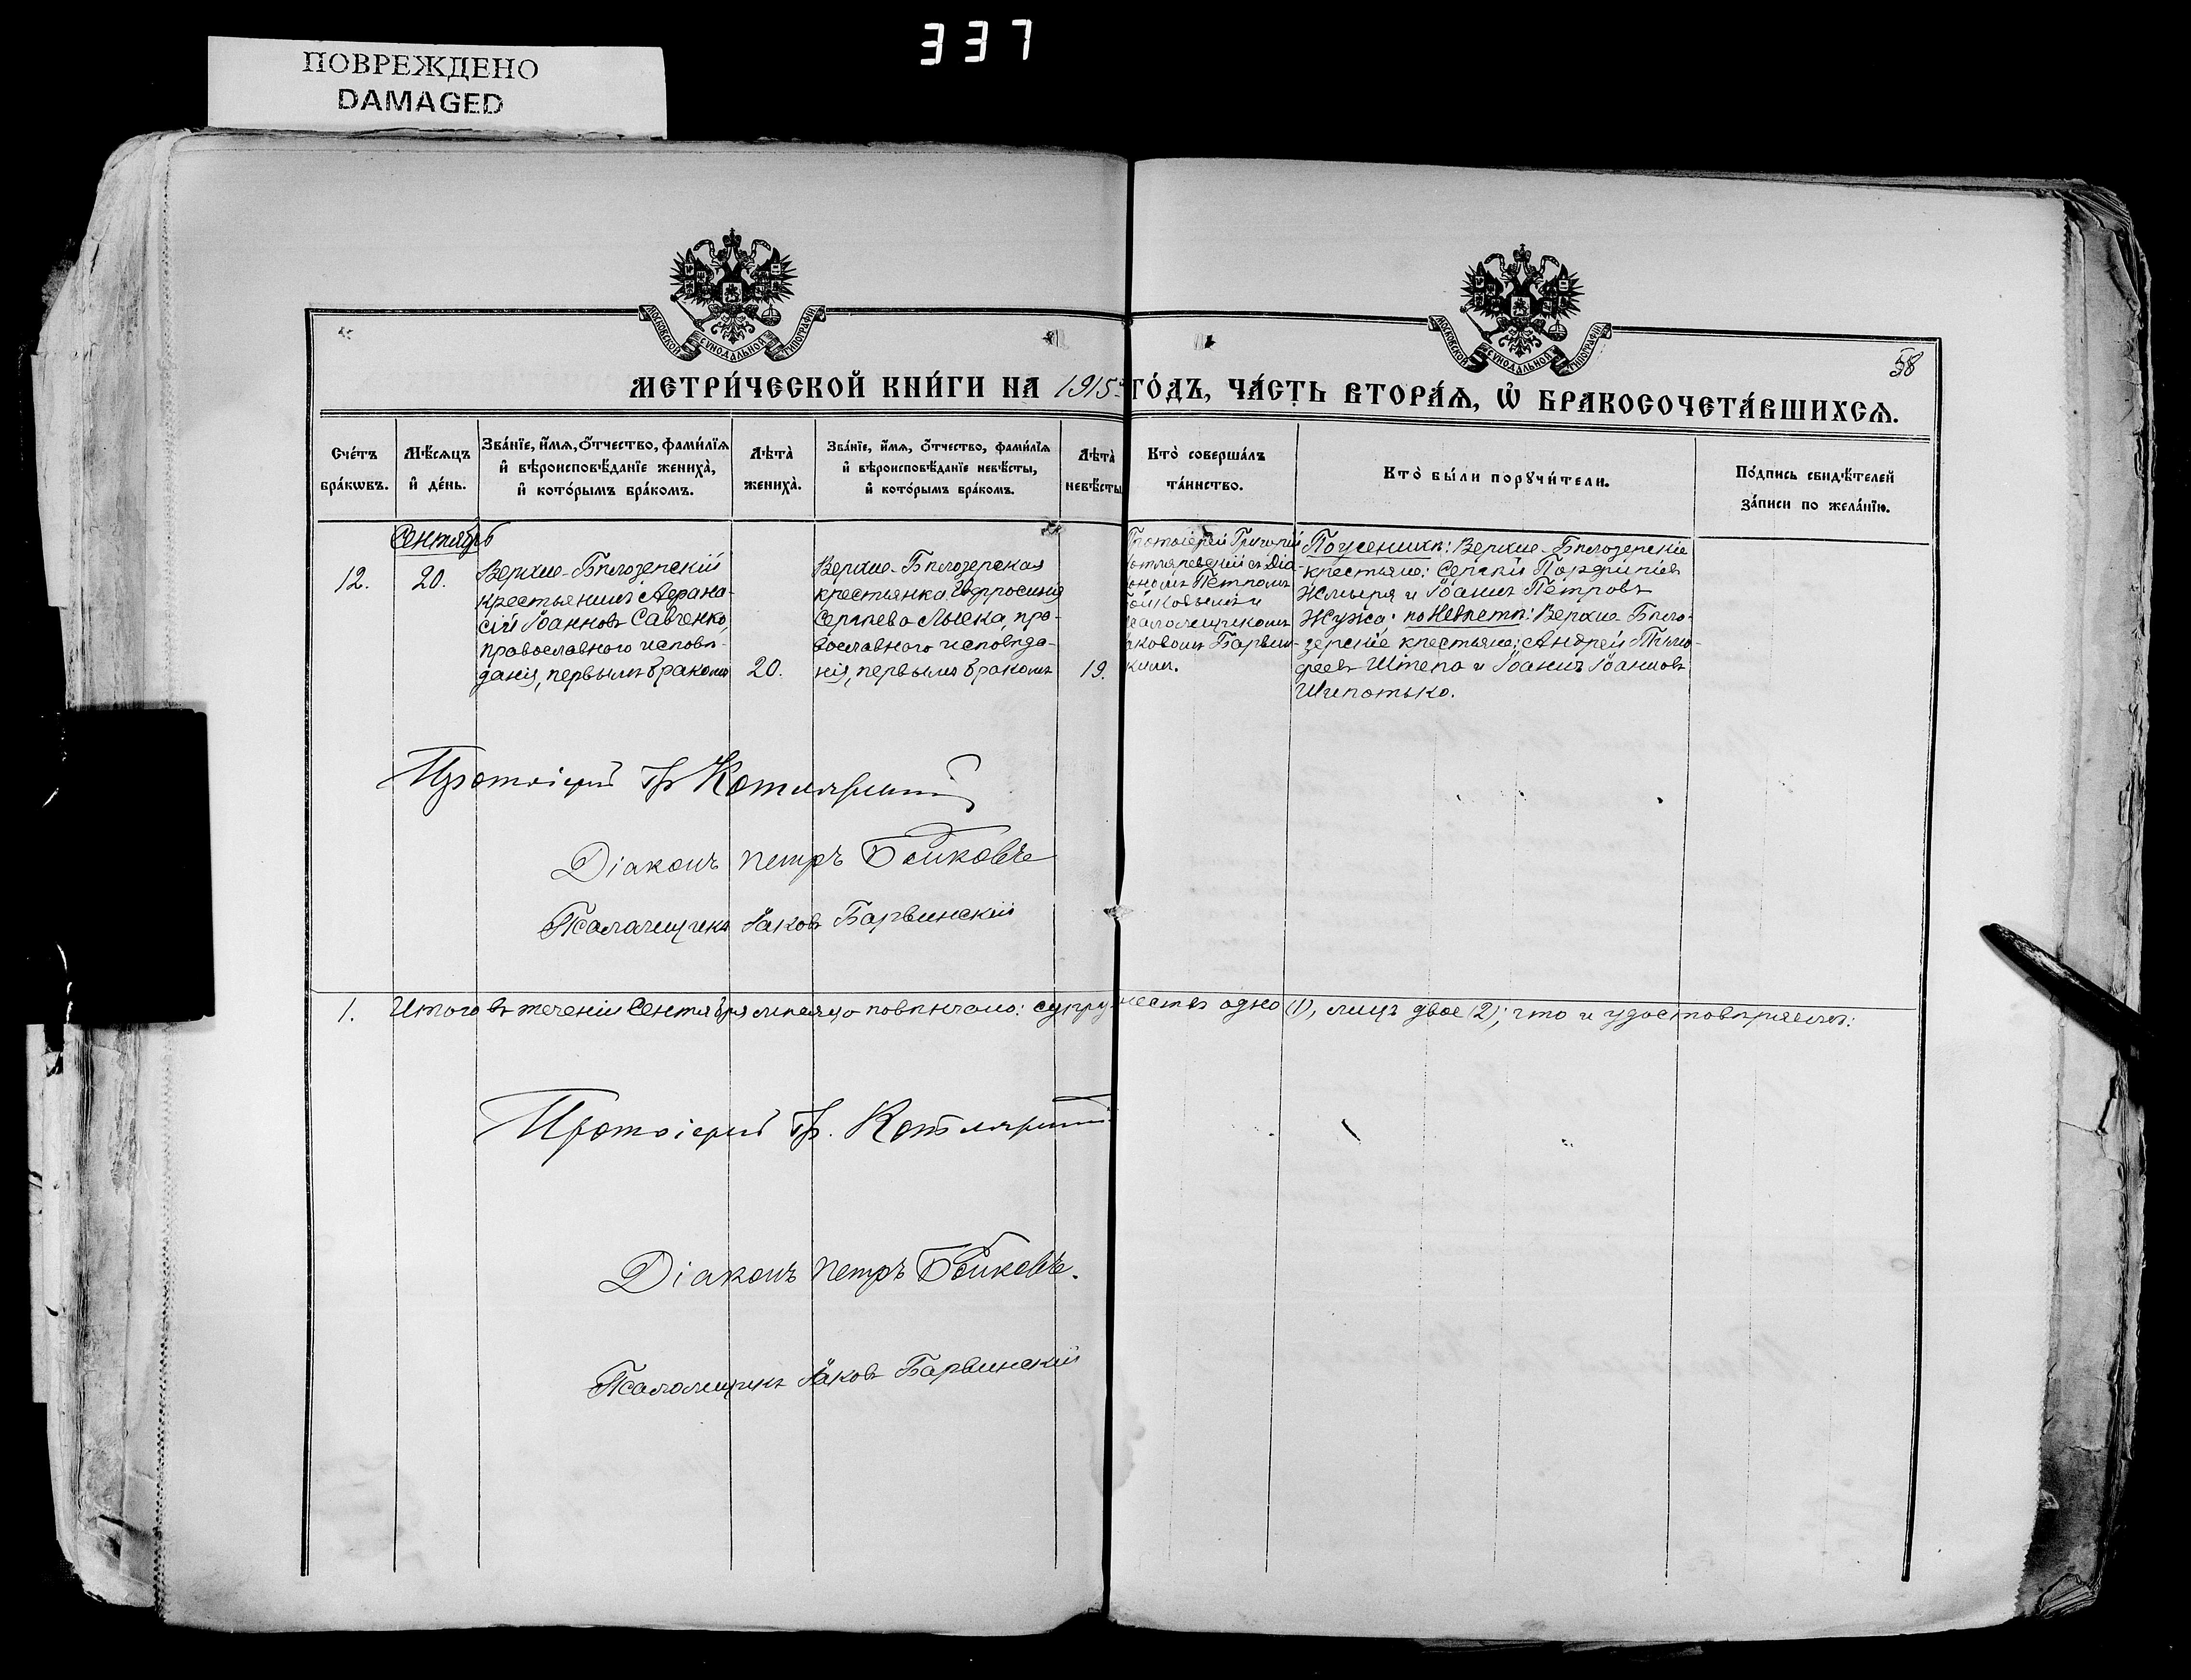 337
ПОВРЕЖДЕНО
DAMAGED
МОСКОВСКОЙ СѴНОДАЛЬНОЙ ТИПОГРАФІИ
МОСКОВСКОЙ СѴНОДАЛЬНОЙ ТИПОГРАФІИ
58
МЕТРИ́ЧЕСКОЙ КНИ́ГИ НА 1915 ГО́ДЪ, ЧА́СТЬ ВТОРА́Ѧ, Ѡ҆ БРАКОСОЧЕТА́ВШИХСѦ.
Сче́тъ
бра́кѡвъ.
Мѣ́сѧцъ
и҆ де́нь.
Зва́нїе, и҆́мѧ, ѻ҆́тчество, фами́лїѧ
и҆ вѣроисповѣ́данїе жениха̀,
и҆ кото́рымъ бра́комъ.
Лѣта̀
жениха̀.
Зва́нїе, и҆́мѧ, ѻ҆́тчество, фами́лїѧ
и҆ вѣроисповѣ́данїе невѣ́сты,
и҆ кото́рымъ бра́комъ.
Лѣта̀
невѣ́сты
Кто̀ соверша́лъ
та́инство.
Кто̀ бы́ли порꙋчи́тели.
По́дпись свидѣ́телей
за́писи по жела́нїю.
Сентябрь
12.
20.
Верхне-Бѣлозерскій
крестьянинъ Афана-
сій Іоанновъ Савченко,
православнаго исповѣ-
данія, первымъ бракомъ
20.
Верхне-Бѣлозерская
крестьянка Евфросинія
Сергѣева Лыска, пра-
вославнаго исповѣда-
нія, первымъ бракомъ
19.
Протоіерей Григорій
Котляревскій съ діа-
кономъ Петромъ
Бойковымъ и
псаломщикомъ
Іаковомъ Барвин-
скимъ.
По женихѣ: Верхне-Бѣлозерскіе
крестьяне: Сергій Порфиріевъ
Жмыря и Іоаннъ Петровъ
Жужа; по невѣстѣ: Верхне-Бѣло-
зерскіе крестьяне: Андрей Тимо-
феевъ Штепа и Іоаннъ Іоанновъ
Шепотько.
Протоіерей Гр Котляревскій
Діаконъ Петръ Бойковъ
Псаломщикъ Іаковъ Барвинскій
1. Итого въ теченіи Сентября мѣсяца повѣнчано: супружествъ одно (1), лицъ двое (2); что и удостовѣряемъ:
Протоіерей Гр. Котляревскій
Діаконъ Петръ Бойковъ.
Псаломщикъ Іаковъ Барвинскій